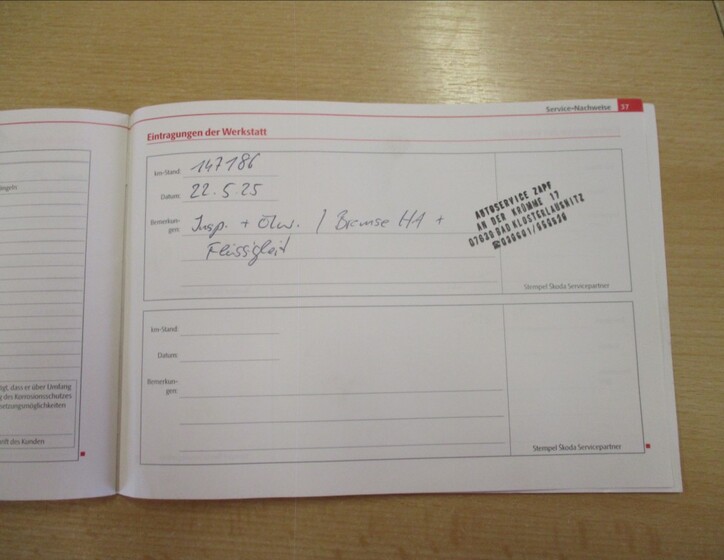 Service-Nachweise 37
Eintragungen der Werkstatt
km-Stand: 147186
Datum: 22.5.25
Bemerkun-
gen: Insp. + Ölw. / Bremse HA +
Flüssigkeit
AUTOSERVICE ZAPF
AN DER KRÜMME 17
07639 BAD KLOSTERLAUSNITZ
Stempel Škoda Servicepartner
km-Stand:
Datum:
Bemerkun-
gen:
Stempel Škoda Servicepartner
ängeln
tigt, dass er über Umfang
g des Korrosionsschutzes
setzungsmöglichkeiten
rift des Kunden